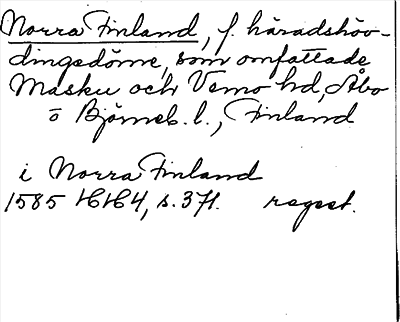 Norra Finland, f. häradshöv-
dingedöme, som omfattade
Masku och Vemo hd, Åbo
o Björneb. l., Finland
i Norra Finland
1585 HH4, s. 371. regest.